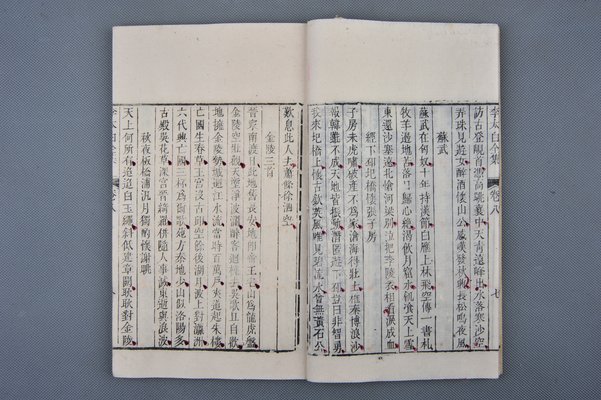 李太白全集 卷八 七
訪古登峴首憑高眺襄中天清遠峰出水落寒沙空
弄珠見遊女醉酒懷山公感嘆發秋興長松鳴夜風
蘇武
蘇武在匈奴十年持漢節白雁上林飛空傳一書札
牧羊邊地苦落日歸心絕渴飲月窟水飢餐天上雪
東還沙塞遠北愴河梁別泣把李陵衣相看淚成血
經下邳圯橋懷張子房
子房未虎嘯破產不為家滄海得壯士椎秦博浪沙
報韓雖不成天地皆振動潛匿遊下邳豈曰非智勇
我來圯橋上懷古欽英風唯見碧流水曾無黃石公
歎息此人去蕭條徐泗空
金陵三首
晉家南渡日此地舊長安地即帝王宅山為龍虎盤
金陵空壯觀天塹淨波瀾醉客迴橈去吳歌且自歡
地擁金陵勢城迴江水流當時百萬戶夾道起朱樓
亡國生春草王宮沒古丘空餘後湖月波上對瀛洲
六代興亡國三杯為爾歌苑方秦地少山似洛陽多
古殿吳花草深宮晉綺羅併隨人事滅東逝與滄波
秋夜板橋浦汎月獨酌懷謝朓
天上何所有迢迢白玉繩斜低建章闕耿耿對金陵
卷八